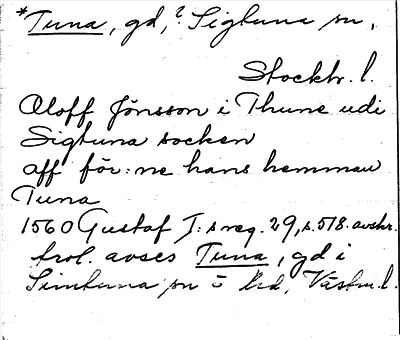 *Tuna, gd,? Sigtuna sn,
Stockh. l.
Oloff Jönsson i Thune udi
Sigtuna socken
aff för:ne hans hemman
Tuna
1560 Gustaf I:s reg. 29, s. 518. avskr.
trol. avses Tuna, gd i
Simtuna sn o hd, Västm. l.